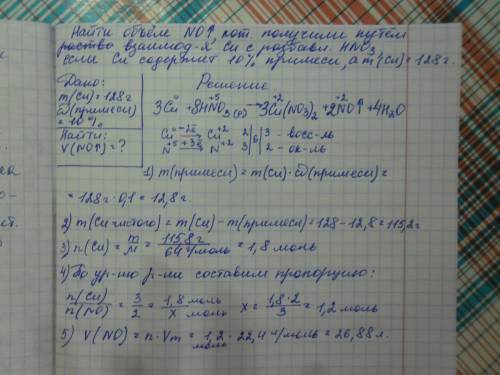 Найти объём NO↑, кот. получили путём
взаимод-я Cu с разбавл. HNO3,
если Cu содержит 10% примеси, а m(Cu)=128г.
Дано:
m(Cu)=128г
ω(примеси)
=10%
Найти:
V(NO↑)=?
Решение
3Cu⁰+8HN⁺⁵O3(р)→3Cu⁺²(NO3)2+2N⁺²O↑+4H2O
Cu⁰ −2e→ Cu⁺² 2|6|3 - восс-ль
N⁺⁵ +3e→ N⁺² 3| |2 - ок-ль
1) m(примеси)=m(Cu)·ω(примеси)=
=128г·0,1=12,8г.
2) m(Cu чистого)=m(Cu)-m(примеси)=128-12,8=115,2г
3) n(Cu)=m/M=115,8г/64г/моль=1,8моль
4) По ур-ию р-ии составим пропорцию:
n(Cu)/n(NO)=3/2=1,8моль/x моль x=1,8·2/3=1,2моль
5) V(NO)=n·Vm=1,2моль·22,4л/моль=26,88л.